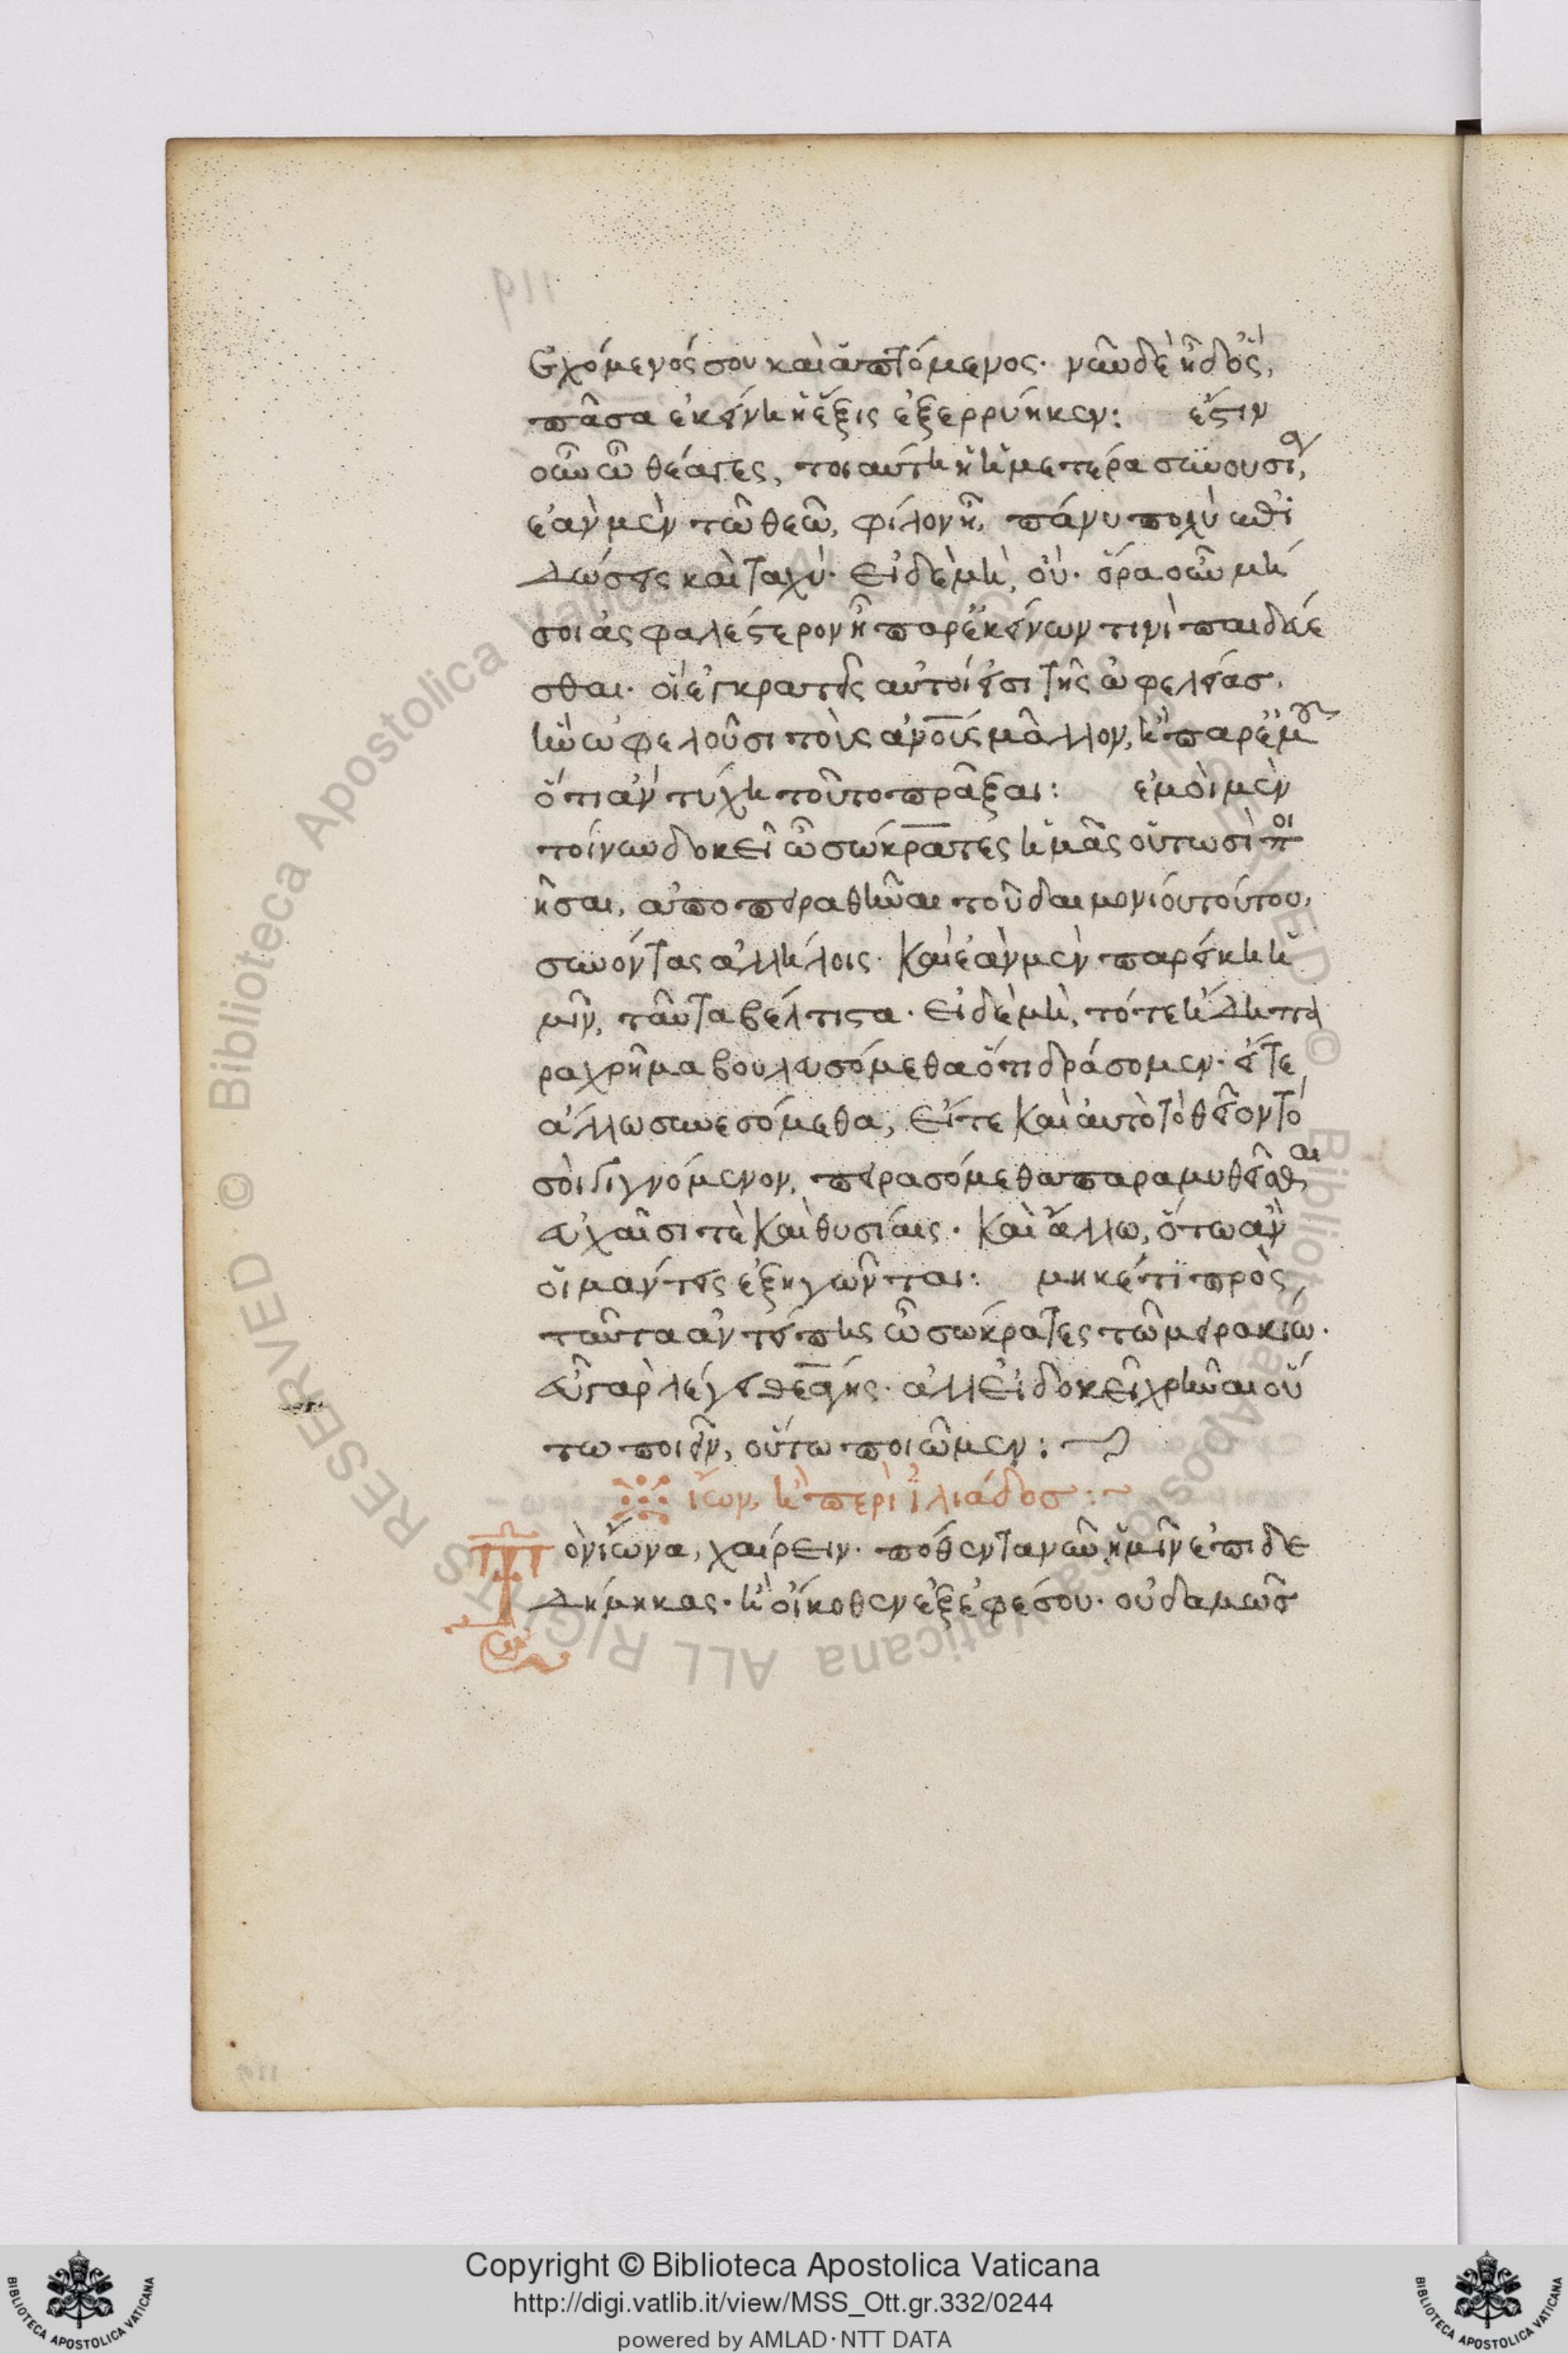 ἐχόμενός σου καὶ ἁπτόμενος· νῦν δὲ ἦδος,
πᾶσα ἐκείνη ἡ ἕξις ἐξερρύηκεν: ἔστιν
οὖν ὦ θέαγες, τοιαύτη ἡ ἡμετέρα συνουσία,
ἐὰν μὲν τῶ θεῶ, φίλον ἦ, πάνυ πολὺ ἐπι
δώσεις καὶ ταχύ· εἰ δὲ μὴ, οὐ· ὅρα οὖν μή
σοι ἀσφαλέστερον ἦ παρ' ἐκείνων τινὶ παιδεύε
σθαι· οἳ ἐγκρατεῖς αὐτοί εἰσι τῆς ὠφελείας,
ἣν ὠφελοῦσι τοὺς ἀνους μᾶλλον, ἢ παρ' ἐμοῦ
ὅτι ἂν τύχη τοῦτο πρᾶξαι: ἐμοὶ μὲν
τοίνυν δοκεῖ ὦ σώκρατες ἡμᾶς οὑτωσὶ ποι
ῆσαι, ἀποπειραθῆναι τοῦ δαιμονίου τούτου,
συνόντας ἀλλήλοις· καὶ ἐὰν μὲν παρείκη ἡ
μῖν, ταῦτα βέλτιστα· εἰ δὲ μὴ, τότε ἤδη πα
ραχρῆμα βουλευσόμεθα ὅτι δράσομεν· εἴτε
ἄλλω συνεσόμεθα, εἴτε καὶ αὐτὸ τὸ θεῖον τό
σοι γιγνόμενον, πειρασόμεθα παραμυθεῖσθαι
εὐχαῖσί τε καὶ θυσίαις· καὶ ἄλλω, ὅτω ἂν
οἱ μάντεις ἐξηγῶνται: μηκέτι πρὸς
ταῦτα ἀντείπης ὦ σώκρατες τῶ μειρακίω·
εὖ γὰρ λέγει θεάγης· ἀλλ' εἰ δοκεῖ χρῆναι οὕ
τω ποιεῖν, οὕτω ποιῶμεν:
ἴων, ἢ περὶ ἰλιάδος:~
Τὸν ἴωνα, χαίρειν· πόθεν τανῦν ἡμῖν ἐπιδε
δήμηκας· ἢ οἴκοθεν ἐξ ἐφέσου· οὐδαμῶς